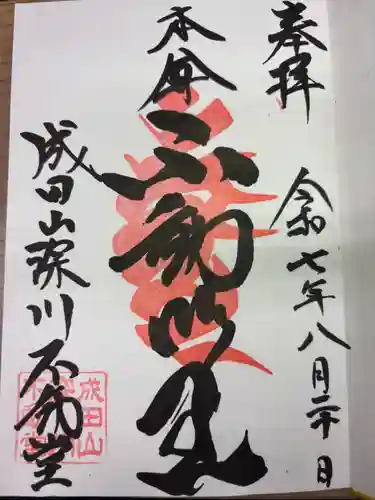 奉拝
令和七年八月二十日
本尊
不動明王
成田山深川不動堂
成田山